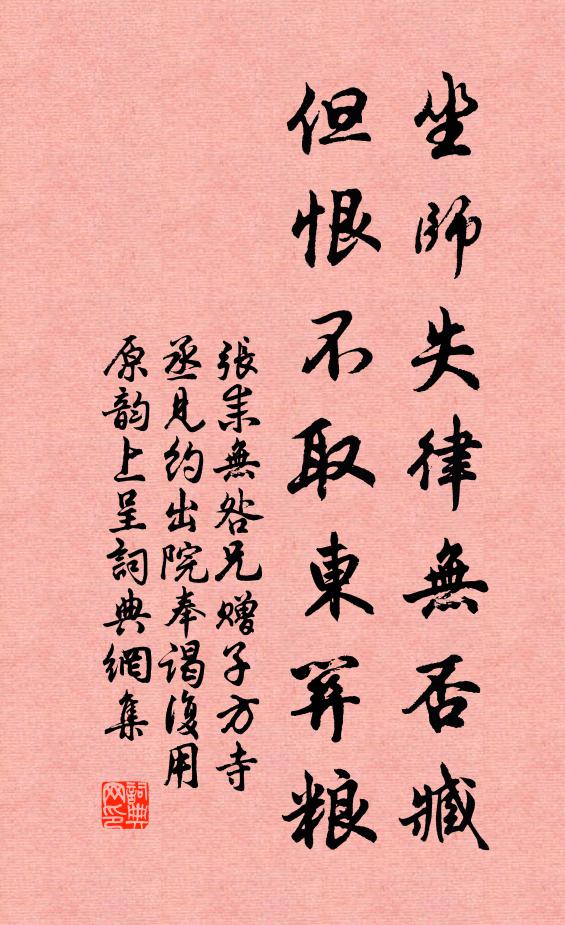 坐師失律無否臧
但恨不取東屏粮
張耒無咎兄贈子方寺
丞見約出院奉謁復用
原韵上呈詞典網集
詞典網印